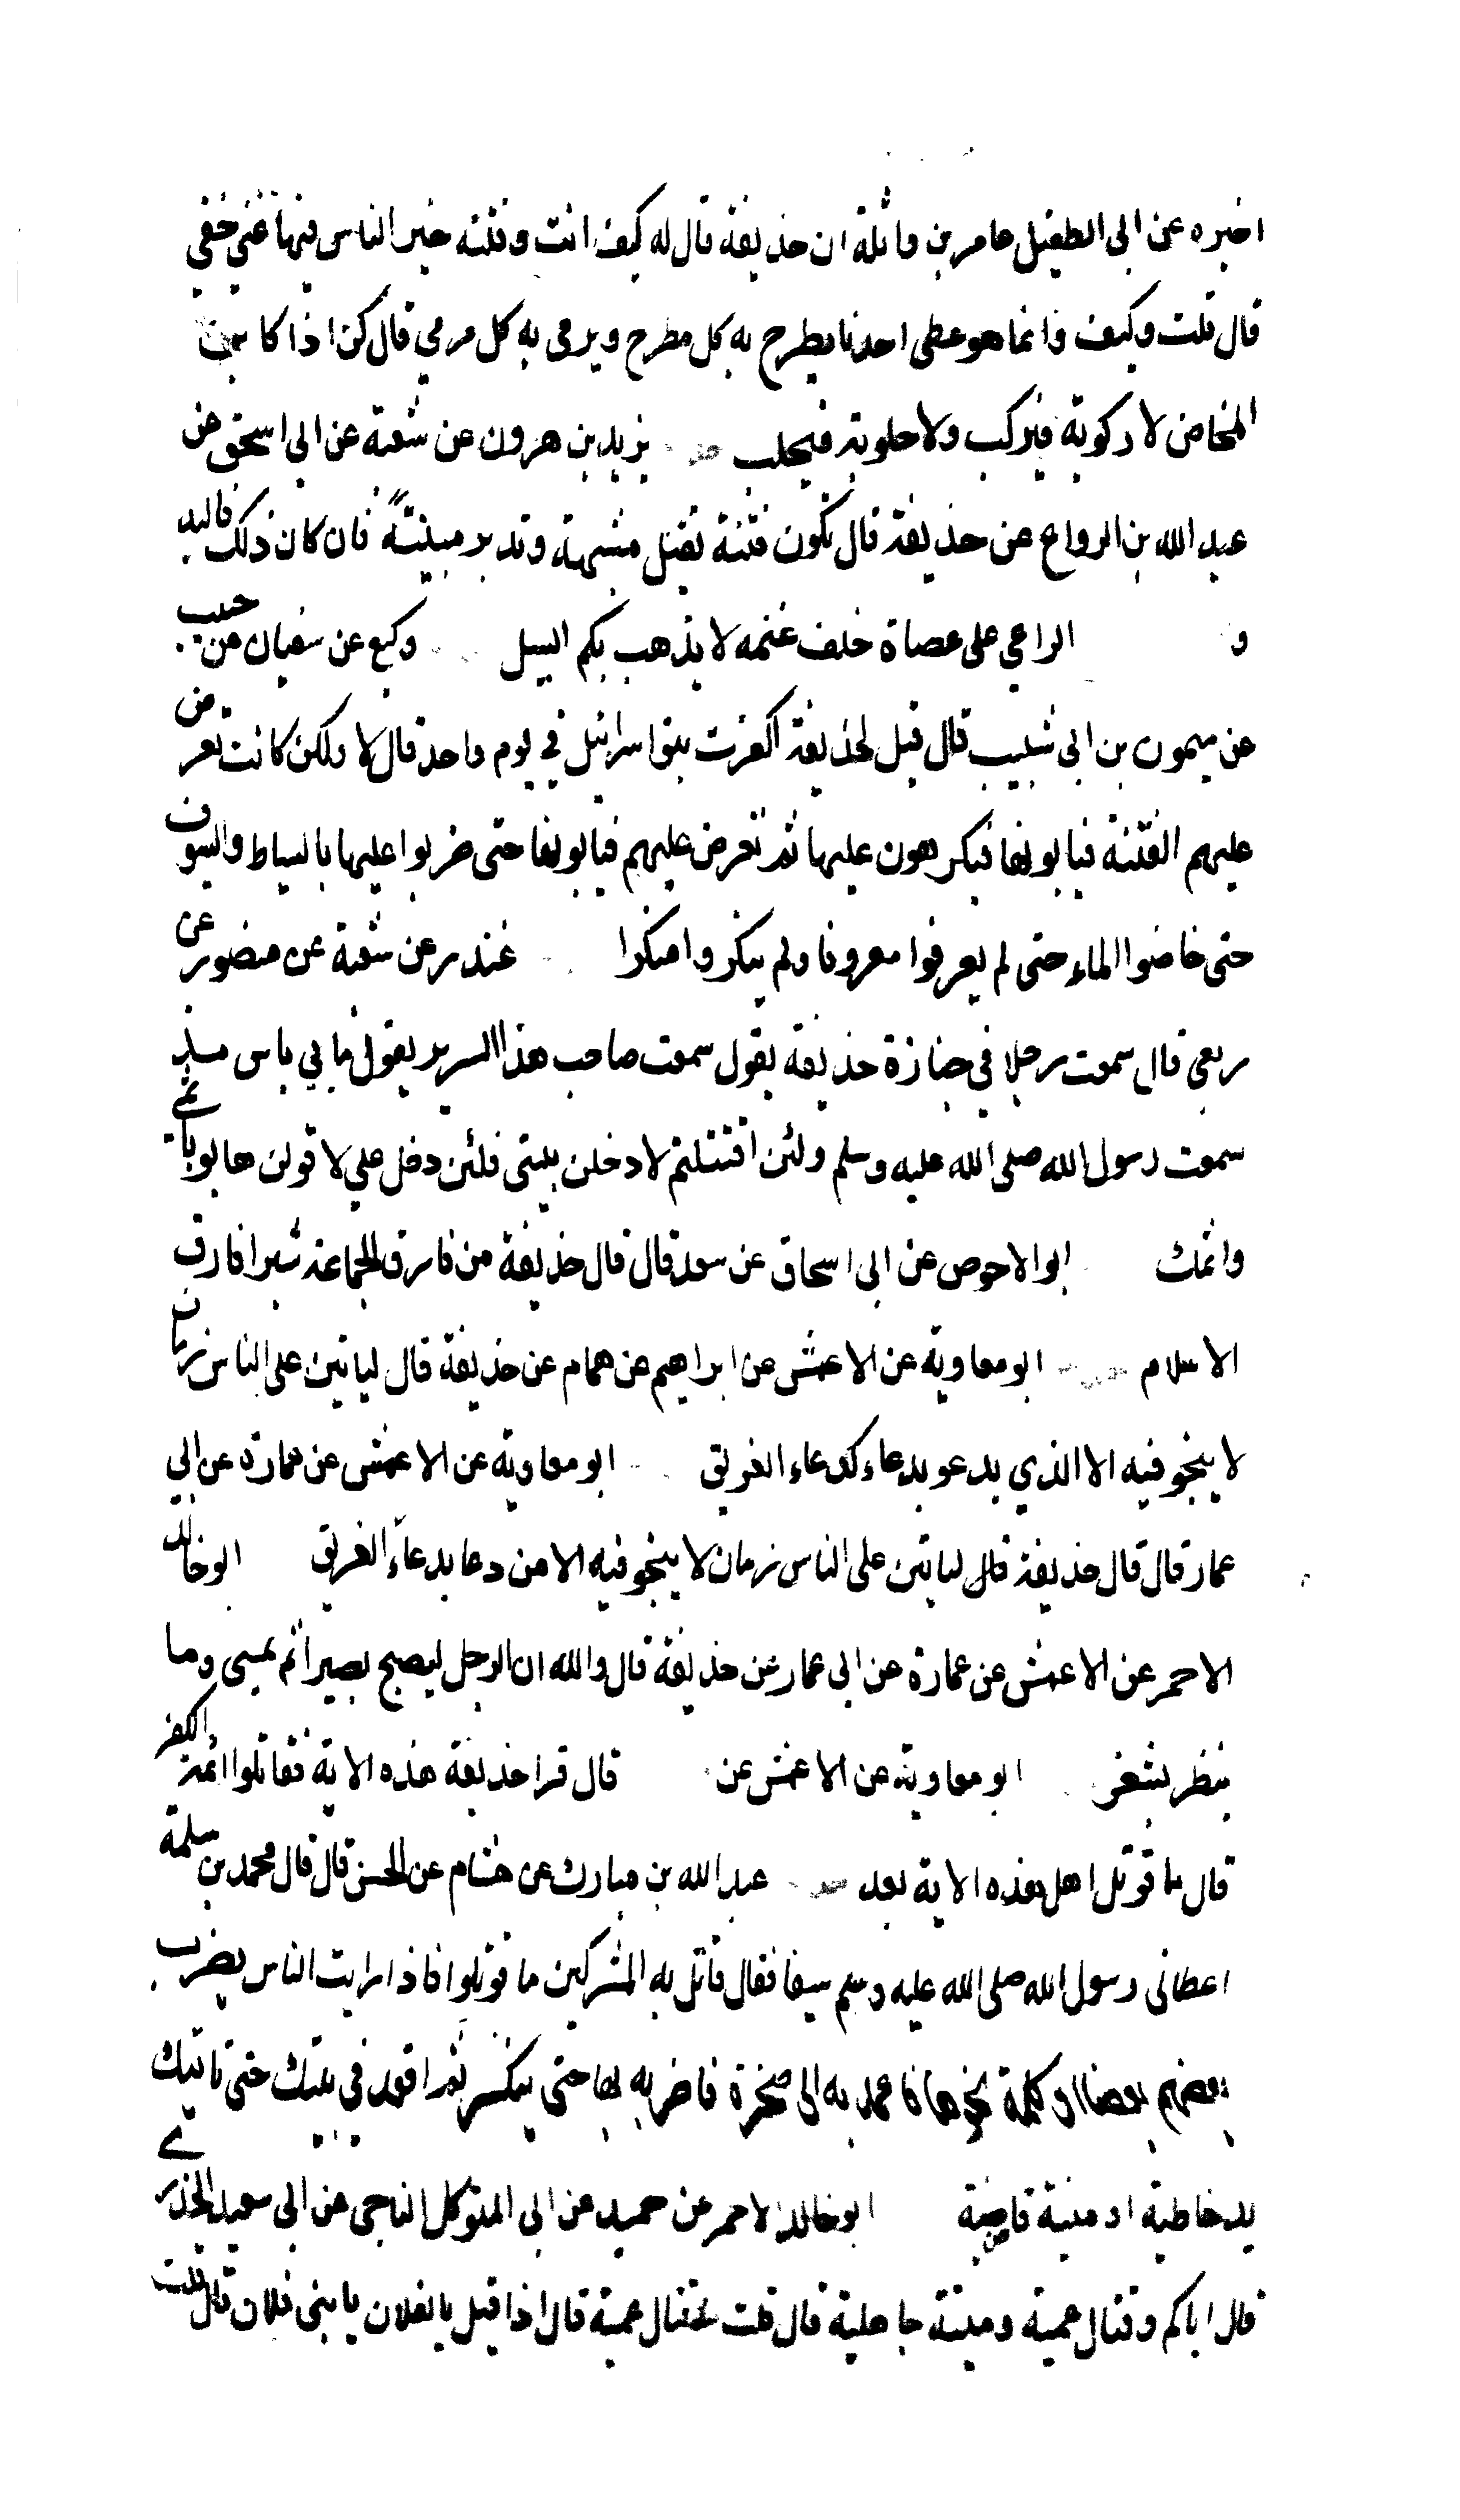 اخبره عن ابى الطفيل عامر بن واثلة ان حذيفة قال له كيف انت وفتنة خير الناس فيها غني خفي
قال قلت وكيف وانما هو عطى احدنا يطرح به كل مطرح ويرمى به كل مرمي قال كن اذا كابن
المخاض لا ركوبة فيركب ولا حلوبة فيحلب يزيد بن هرون عن شعبة عن ابى اسحق عن
عبد الله بن الرواع عن حذيفة قال تكون فتنة تقبل مشبهة وتدبر مبينةً فان كان ذلك فالبد
و الراعي على عصاة خلف غنمه لا يذهب بكم السيل وكيع عن سفيان عن حبيب
عن ميمون بن ابى شبيب قال قيل لحذيفة اكفرت بنو اسرائيل في يوم واحد قال لا ولكن كانت تعرض
عليهم الفتنة فيابونها فيكرهون عليها ثم تعرض عليهم فيابونها حتى ضربوا عليها بالسياط والسيوف
حتى خاضوا الماء حتى لم يعرفوا معروفا ولم ينكروا منكرا غندر عن شعبة عن منصور عن
ربعى قال سمعت رجلا في جنازة حذيفة يقول سمعت صاحب هذا السرير يقول ما بي باس مذ
سمعت رسول الله صلى الله عليه وسلم ولئن اقتتلتم لادخلن بيتى فلئن دخل علي لاقولن ها بوباثمي
واثمك ابو الاحوص عن ابى اسحاق عن سعد قال قال حذيفة من فارق الجماعة شبرا فارق
الاسلام ابو معاوية عن الاعمش عن ابراهيم عن همام عن حذيفة قال لياتين على الناس زمان
لا ينجو فيه الا الذي يدعو بدعاء كدعاء الغريق ابو معاوية عن الاعمش عن عمارة عن ابي
عمار قال قال حذيفة قال لياتين على الناس زمان لا ينجو فيه الا من دعا بدعاء الغريق ابو خالد
الاحمر عن الاعمش عن عمارة عن ابى عمار عن حذيفة قال والله ان الرجل ليصبح بصيرا ثم يمسى وما
ينظر بشفر ابو معاوية عن الاعمش عن قال قرا حذيفة هذه الاية فقاتلوا ائمة الكفر
قال ما قوتل اهل هذه الاية بعد عبد الله بن مبارك عن هشام عن الحسن قال قال محمد بن مسلمة
اعطانى رسول الله صلى الله عليه وسلم سيفا فقال قاتل به المشركين ما قوتلوا فاذا رايت الناس يضرب
بعضهم بعضا او كلمة نحوها فاعمد به الى صخرة فاضربه بها حتى ينكسر ثم اقعد في بيتك حتى تاتيك
يد خاطية او منية قاضية ابو خالد الاحمر عن حميد عن ابى المتوكل الناجى عن ابى سعيد الخدري
قال اياكم وقتال عمية وميتة جاهلية قال قلت ما قتال عمية قال اذا قيل يالفلان يا بنى فلان قال قلت